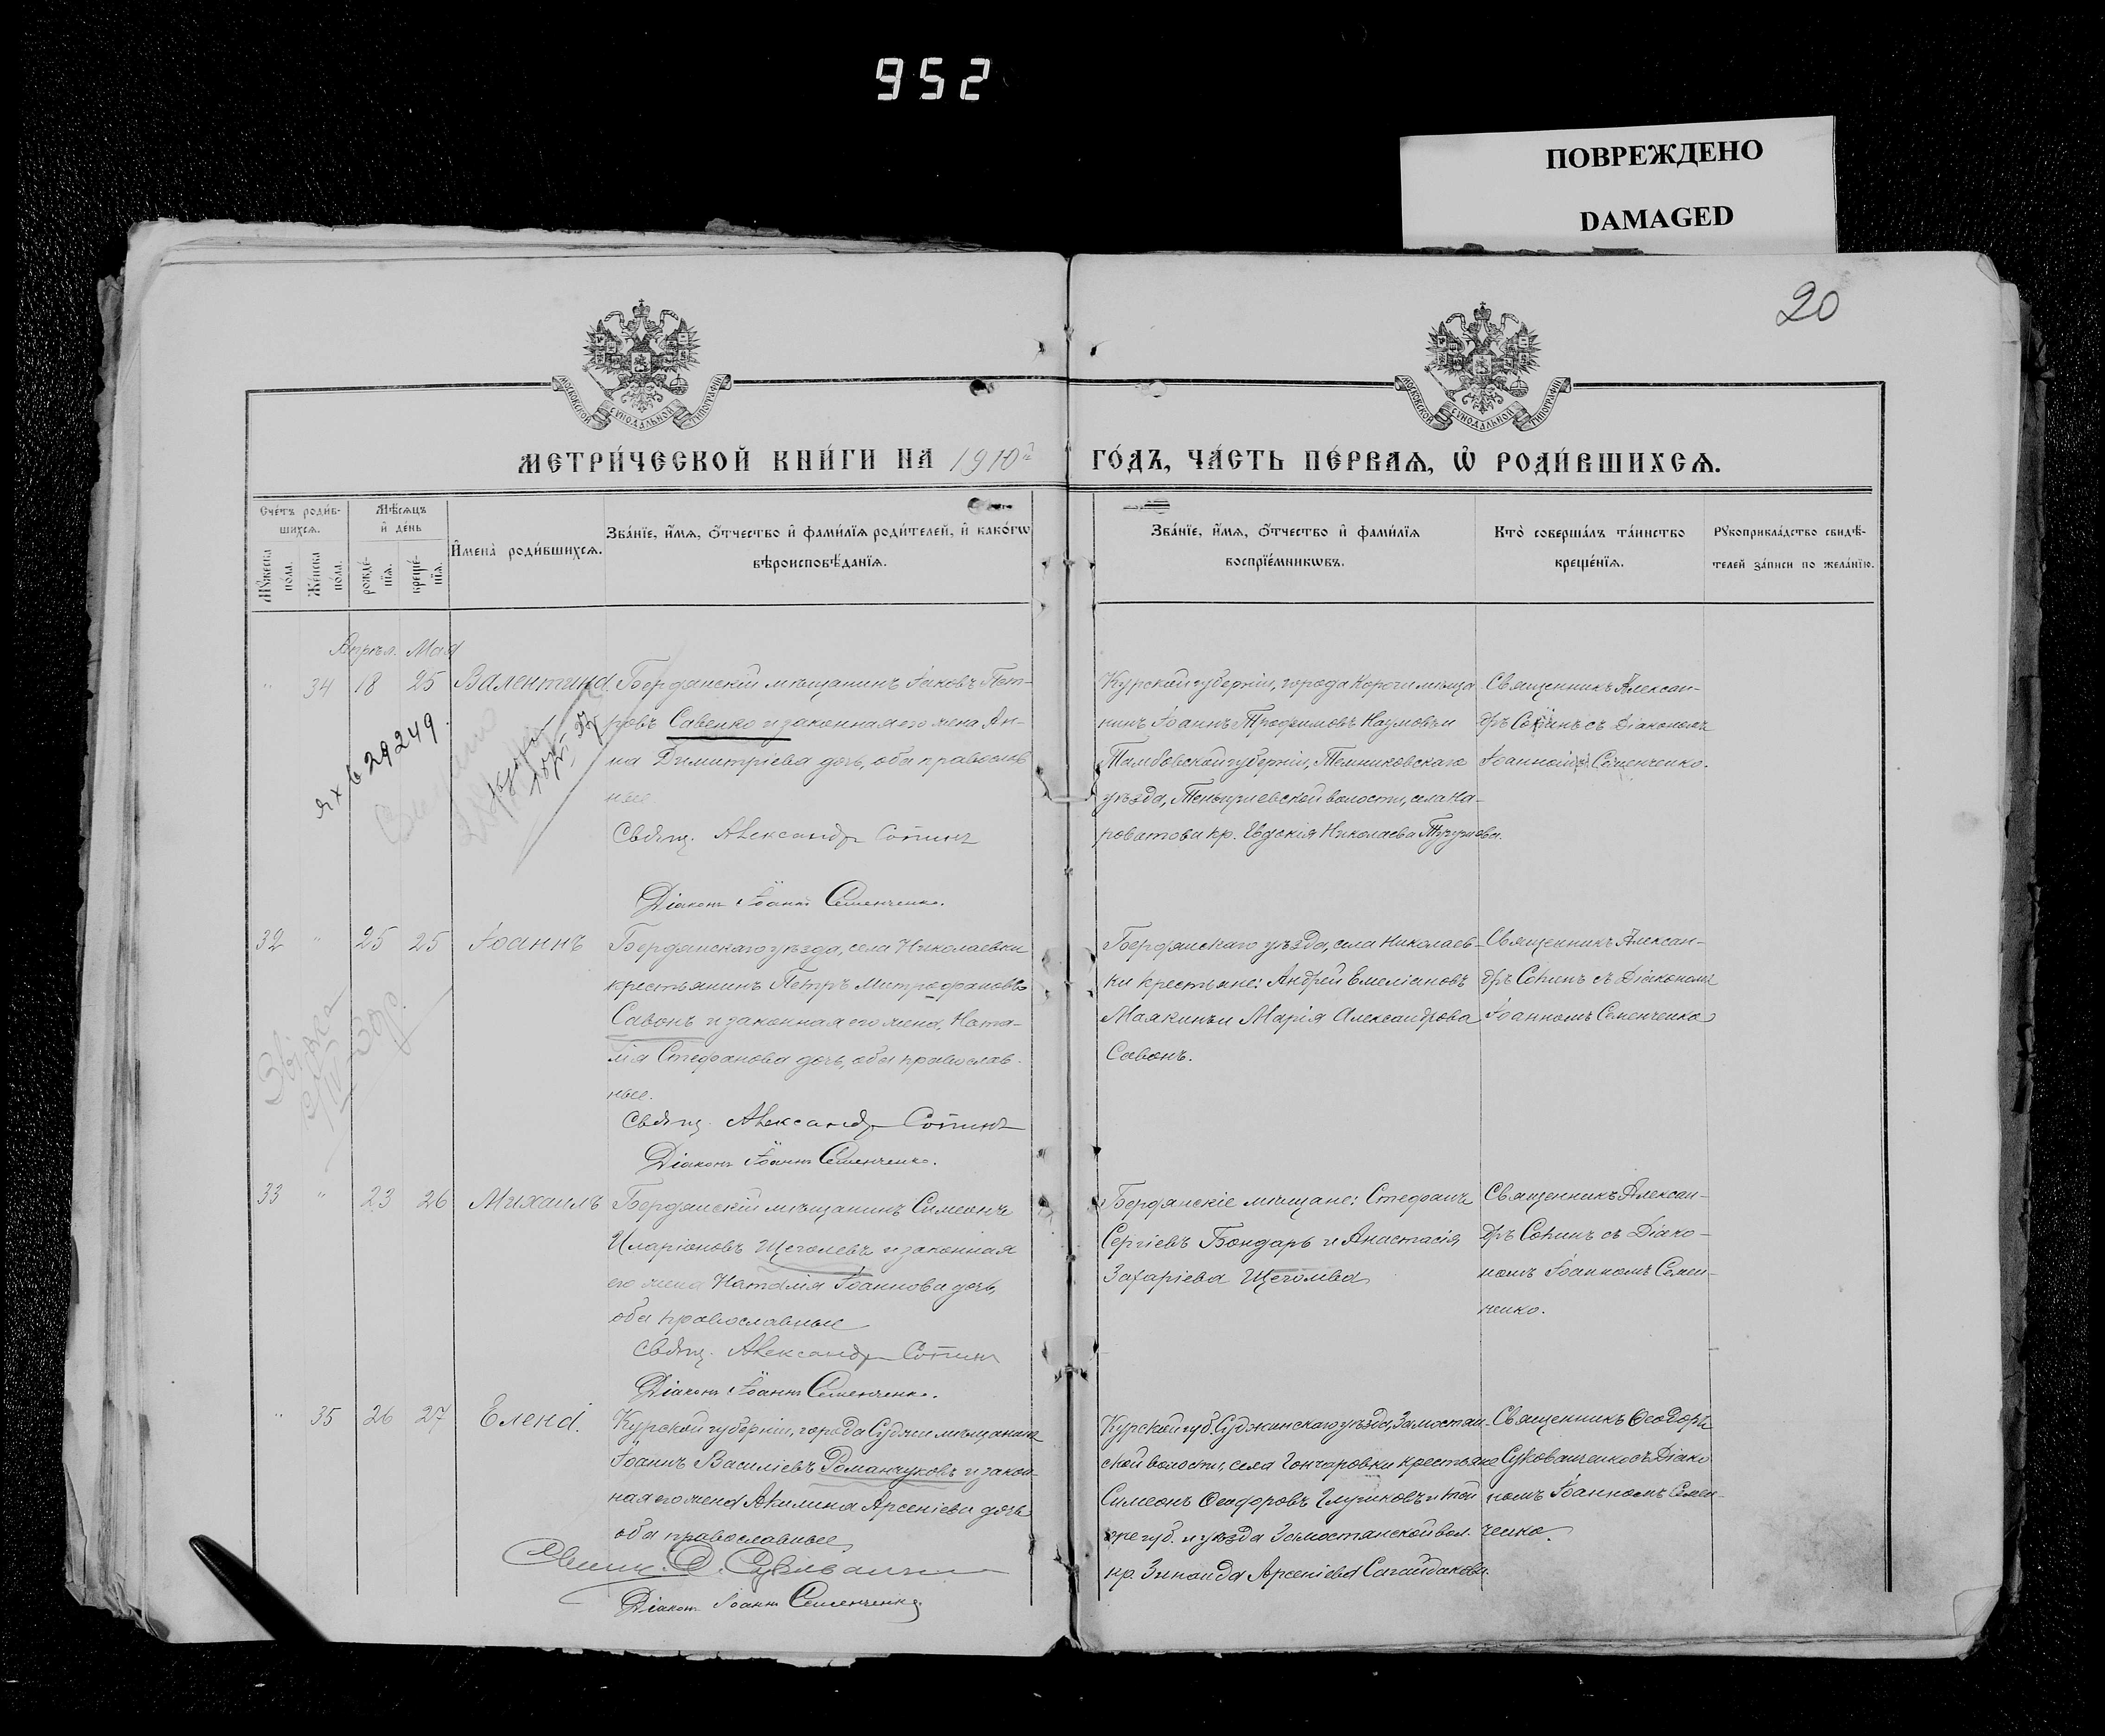 952
ПОВРЕЖДЕНО
DAMAGED
20
МОСКОВСКОЙ СѴНОДАЛЬНОЙ ТИПОГРАФІИ
МОСКОВСКОЙ СѴНОДАЛЬНОЙ ТИПОГРАФІИ
МЕТРИ́ЧЕСКОЙ КНИ́ГИ НА 1910й ГО́ДЪ, ЧА́СТЬ ПЕ́РВАѦ, Ѽ РОДИ́ВШИХСѦ.
Сче́тъ роди́в-
шихсѧ.
Мꙋ́жеска
по́ла.
Же́нска
по́ла.
Мѣ́сѧцъ
и҆ де́нь
рожде́-
нїѧ.
креще́-
нїѧ.
И҆мена̀ роди́вшихсѧ.
Зва́нїе, и҆́мѧ, ѻ҆́тчество и҆ фами́лїѧ роди́телей, и҆ како́гѡ
вѣроисповѣ́данїѧ.
Зва́нїе, и҆́мѧ, ѻ҆́тчество и҆ фами́лїѧ
воспрїе́мникѡвъ.
Кто̀ соверша́лъ та́инство
креще́нїѧ.
Рꙋкоприкла́дство свидѣ́-
телей за́писи по жела́нїю.
Апрѣл. Мая
" 34 18 25 Валентина.
Бердянскій мѣщанинъ Іаковъ Пет-
ровъ Савенко и законная его жена Ан-
на Димитріева дочь, оба православ
ные
Свящ. Александр Сопинъ
Діаконъ Іоаннъ Семенченко.
Курской губерніи, города Корочи мѣща
нинъ Іоаннъ Трофимовъ Наумовъ и
Тамбовской губерніи, Темниковскаго
уѣзда, Теньгушевской волости, села На-
роватова кр. Евдокія Николаева
Священникъ Алексан-
дръ Сопинъ съ Діакономъ
Іоанномъ Семенченко.
ЯХ 629249.
32 " 25 25 Іоаннъ
Бердянскаго уѣзда, села Николаевки
крестьянинъ Петръ Митрофановъ
Савонъ и законная его жена Ната-
лія Стефанова дочь, оба православ-
ные.
Свящ. Александр Сопинъ
Діаконъ Іоаннъ Семенченко.
Бердянскаго уѣзда, села Николаев-
ки крестьяне: Андрей Емеліановъ
Маякинъ и Марія Александрова
Савонъ.
Священникъ Алексан-
дръ Сопинъ съ Діакономъ
Іоанномъ Семенченко
33 " 23 26 Михаилъ
Бердянскій мѣщанинъ Симеонъ
Иларіоновъ Щеголевъ и законная
его жена Наталія Іоаннова дочь,
оба православные
Свящ. Александр Сопинъ
Діаконъ Іоаннъ Семенченко.
Бердянскіе мѣщане: Стефанъ
Сергіевъ Бондарь и Анастасія
Захаріева Щеголева
Священникъ Алексан-
дръ Сопинъ съ Діако-
номъ Іоанномъ Семен-
ченко.
" 35 26 27 Елена.
Курской губерніи, города Суджи мѣщанинъ
Іоаннъ Василіевъ Романчуковъ и закон-
ная его жена Акилина Арсеніева дочь
оба православные
Діаконъ Іоаннъ Семенченко
Курской губ. Суджанскаго уѣзда, Замостян-
ской волости, села Гончаровки крестьяне
Симеонъ Феодоровъ Глушковъ и той
же губ. и уѣзда Замостянской вол.
кр. Зинаида Арсеніева Сагайдакова.
Священникъ Феодоръ
Суховашенко съ Діако
номъ Іоанномъ Семен-
ченко.